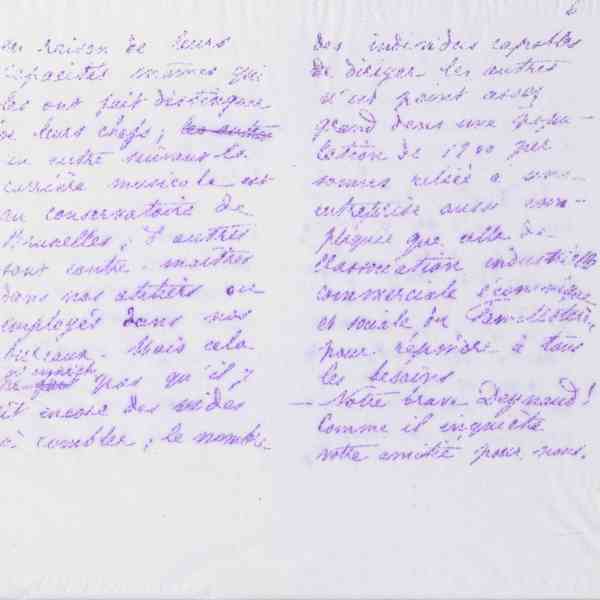 en raison de leurs
capacités mêmes qui
les ont fait distinguer
de leurs chefs; les autres
un autre suivant la
carrière musicale est
au conservatoire de
Bruxelles; d'autres
sont contre-maîtres
dans nos ateliers ou
employés dans nos
bureaux. Mais cela
n'empêche
pas qu'il y
ait encore des vides
à combler; le nombre
des individus capables
de diriger les autres
n'est point assez
grand dans une popu-
lation de 1200 per
sonnes reliée à une
entreprise aussi com-
pliquée que celle de
l'association industrielle
commerciale économique
et sociale du Familistère,
pour répondre à tous
les besoins
— Notre brave Deynaud!
Comme il inquiète
votre amitié pour nous.